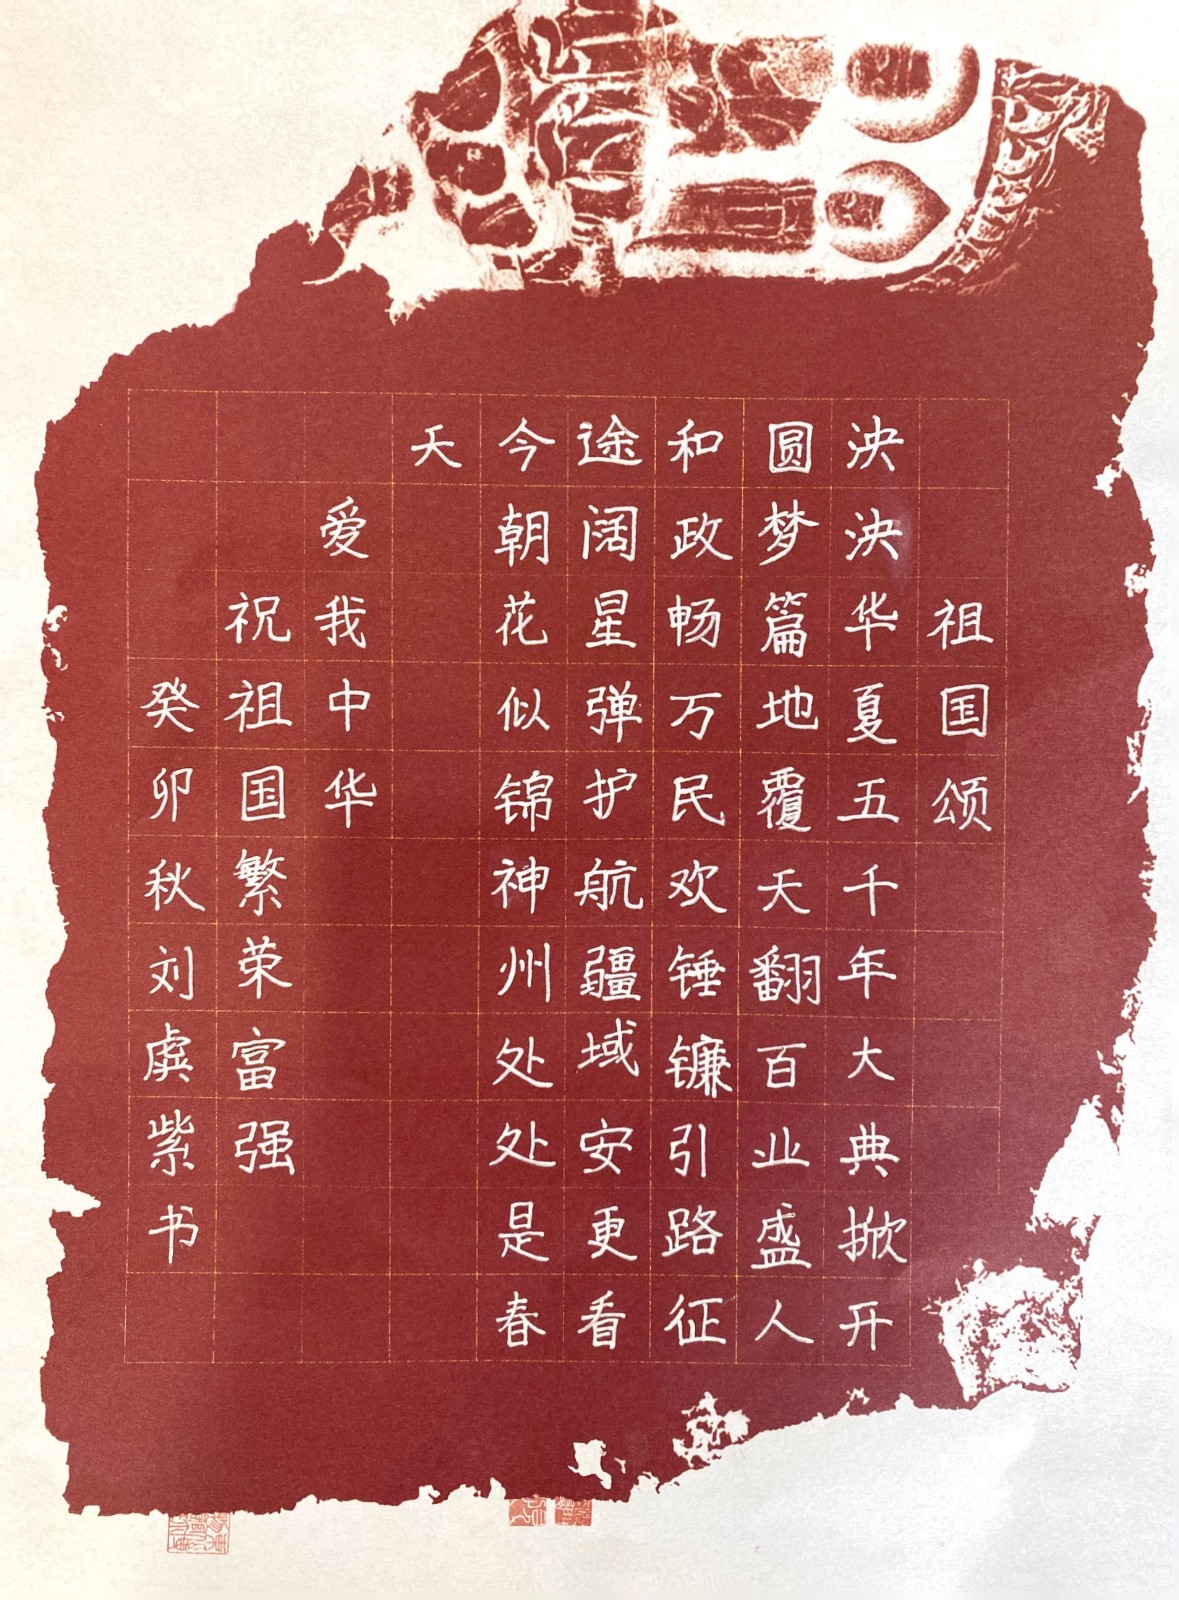 祖国颂
泱泱华夏五千年大典掀开
圆梦篇地覆天翻百业盛人
和政畅万民欢锤镰引路征
途阔星弹护航疆域安更看
今朝花似锦神州处处是春
天
爱我中华
祝祖国繁荣富强
癸卯秋刘虞紫书